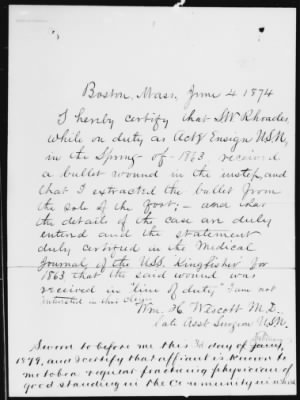 Boston, Mass, June 4 1874
I hereby certify that SW Rhoades,
while on duty as Act'g Ensign U.S.N,
in the Spring of 1863 received
a bullet wound in the instep, and
that I extracted the bullet from
the sole of the foot; - and that
the details of the case are duly
entered and the statement
duly certified in the Medical
Journal of the U.S.S. Kingfisher for
1863 that the said wound was
received in "line of duty" I am not
interested in this claim
Wm. H Westcott M.D.
Late Asst Surgeon U.S.N.
Sworn to before me this day of
1879, and I certify that affiant is known to
me to be a regular practicing physician of
good standing in the community in which